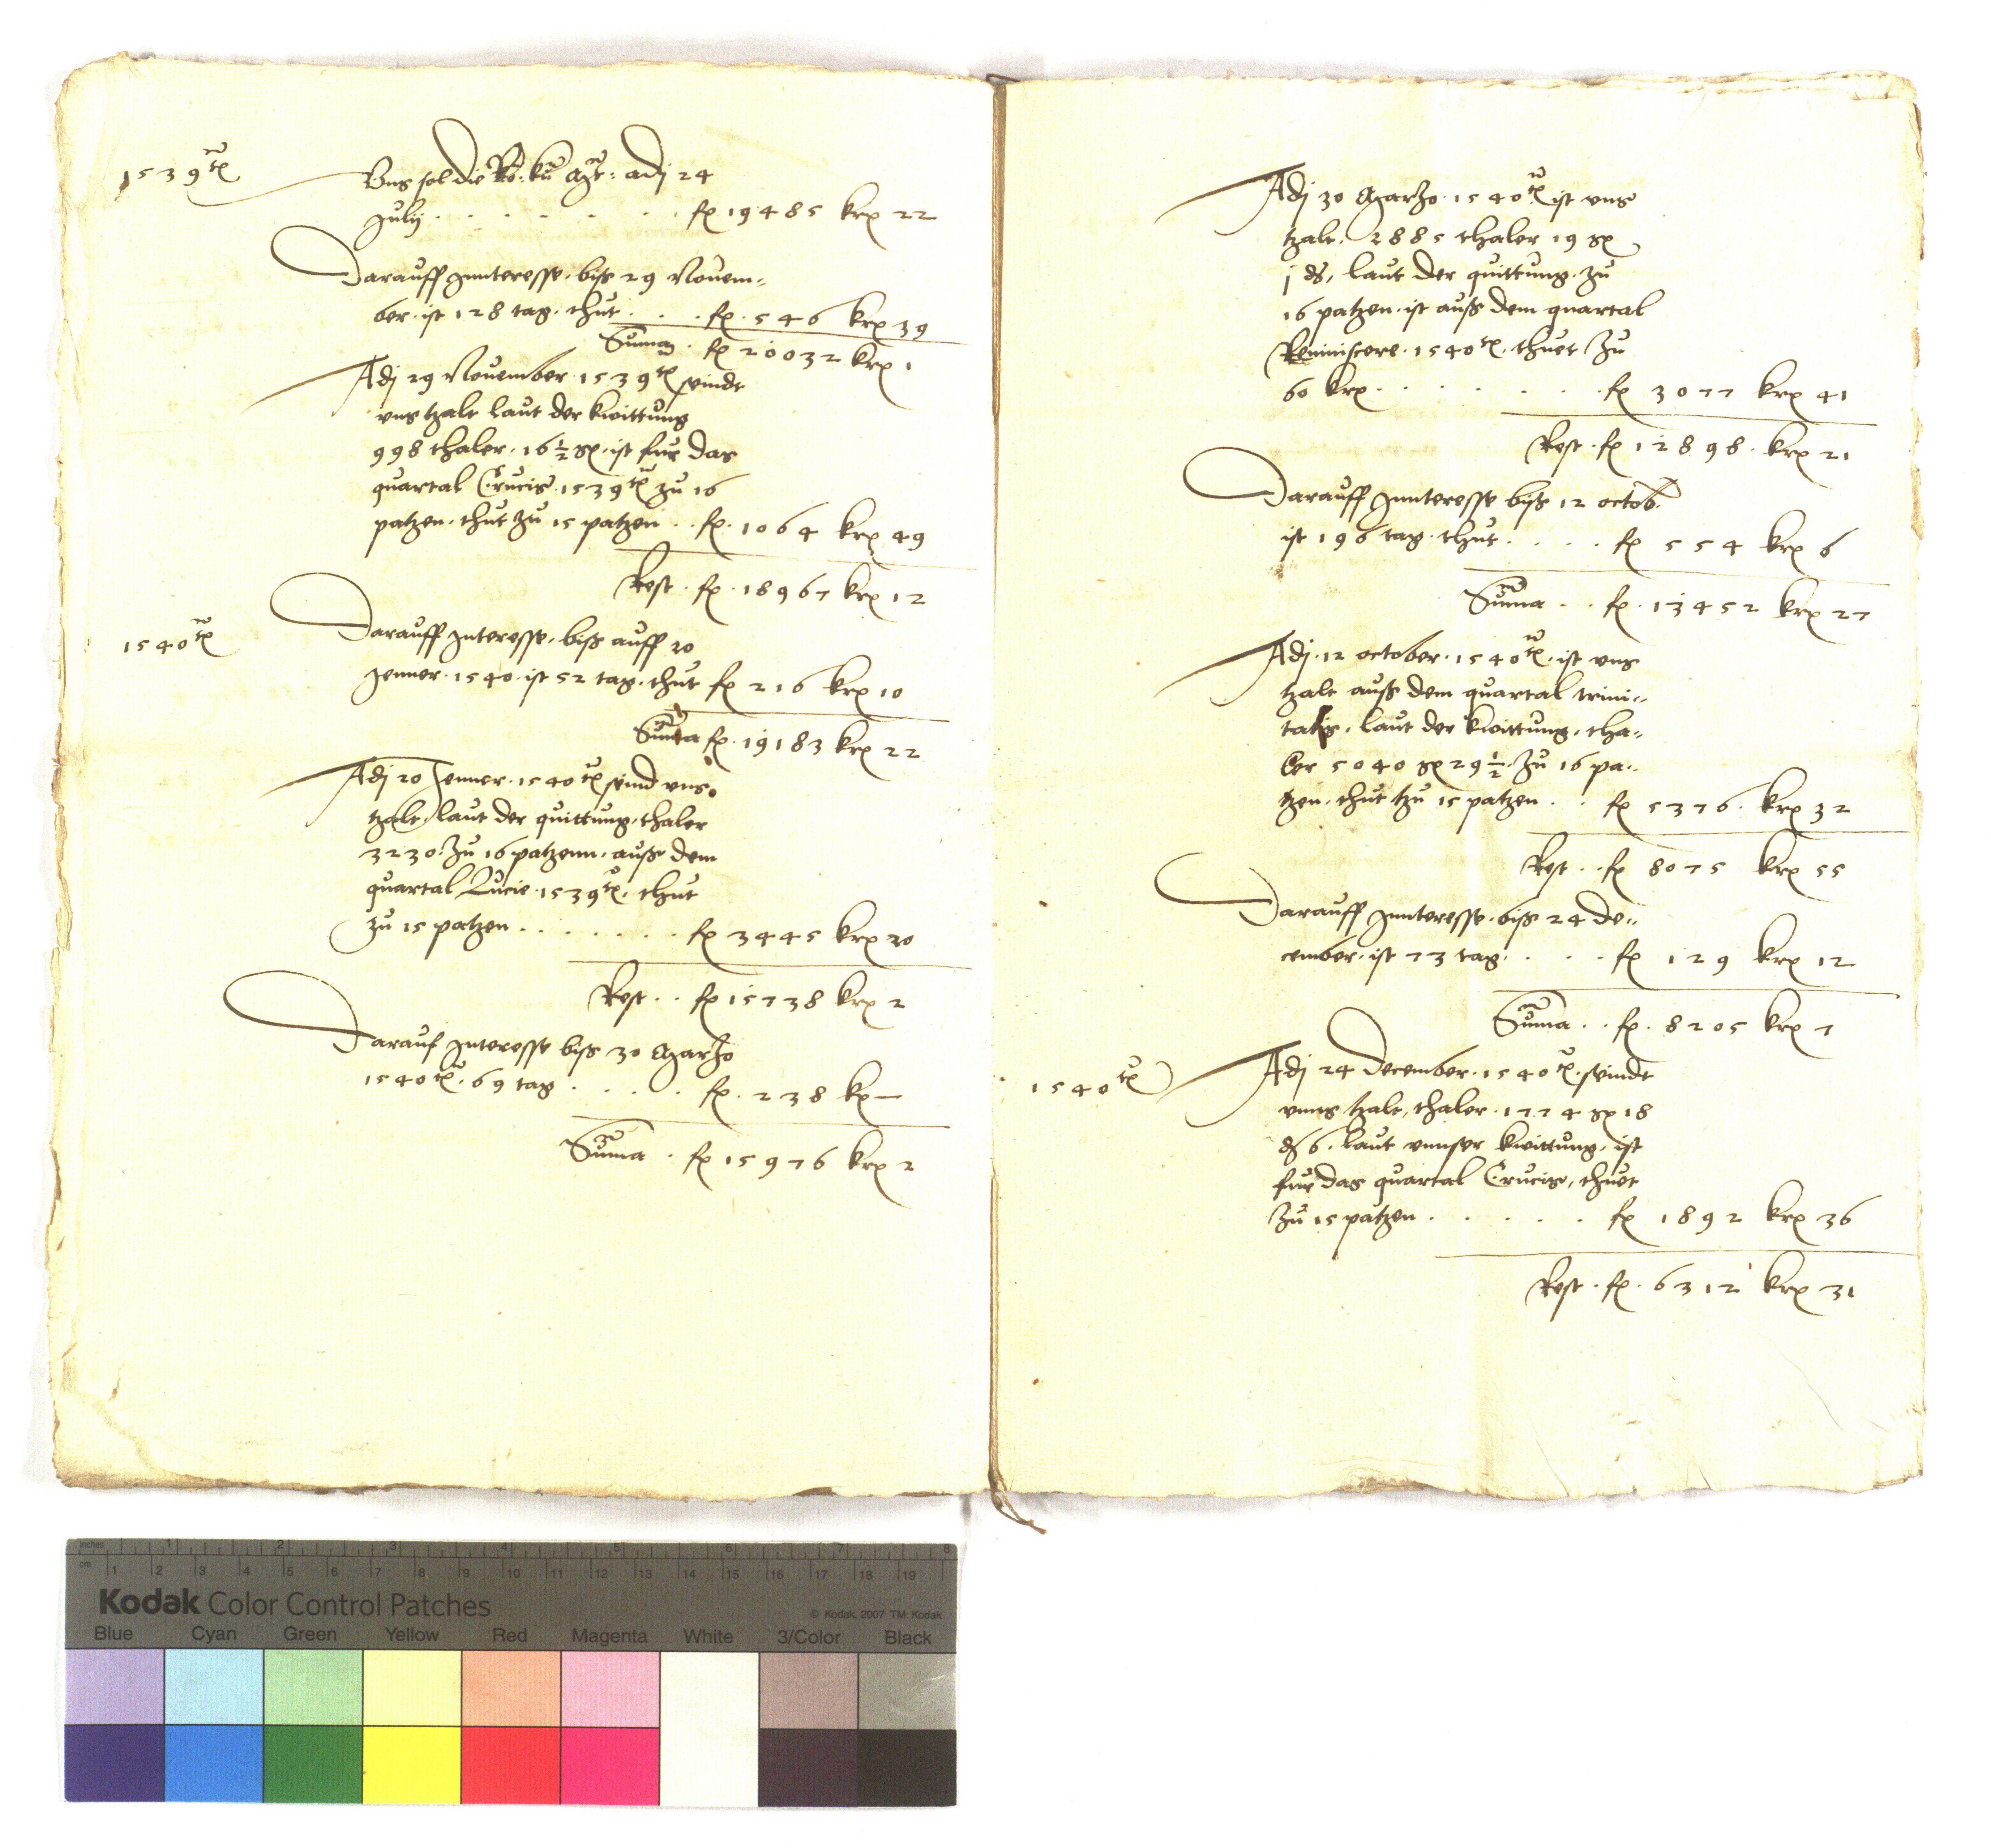 1539te
Vns sol die Rö: kü: Mt: adj 24
Julij . . . . . . . fl 19485 krz 22
Darauff Innteresse. biss 29 Nouem=
ber. ist 128 tag. thut . . . fl. 546 krz 39
Suma . fl 20032 krz 1
Adj 29 Nouember 1539te seindt
vns tzalt laut der kwittung
998 thaler. 16 1/2 gr. ist fur das
quartal Crucis. 1539te zu 16
patzen. thut zu 15 patzen . . fl. 1064 krz 49
Rest . fl. 18967 krz 12
1540te
Darauff Interesse. biss auff 20
Jenner. 1540. ist 52 tag. thut fl 216 krz 10
Suma fl. 19183 krz 22
Adj 20 Jenner. 1540te seind vns
tzalt. laut der quittung. thaler
3230. zu 16 patzenn. auss dem
quartal Lucie. 1539te. thut
zu 15 patzen . . . . . . . fl 3445 krz 20
Rest . . fl 15738 krz 2
Darauf Interesse biss 30 Marzo
1540te. 69 tag . . . . fl. 238 kr —
Suma . fl 15976 krz 2
Adj 30 Marzo. 1540te. ist vns
tzalt. 2885 thaler 19 gr
j d. laut der quittung. zu
16 patzen. ist auss dem quartal
Reminiscere. 1540te. thuet zu
60 krz . . . . . . . fl 3077 krz 41
Rest . fl 12898. krz 21
Darauff Innteresse biss 12 octob.
ist 196 tag. thut . . . . fl 554 krz 6
Suma . . fl. 13452 krz 27
Adj. 12 october. 1540te. ist vns
tzalt auss dem quartal trini=
tatis. laut der kwittung. tha=
ler 5040 gr 29 1/2. zu 16 pa=
tzen. thut tzu 15 patzen . . fl 5376. krz 32
Rest . . fl 8075 krz 55
Darauff Innteresse. biss 24 de=
cember. ist 73 tag. . . . fl 129 krz 12
Suma . . fl. 8205 krz 7
1540te
Adj 24 December. 1540te. seindt
vnns tzalt, thaler. 1774 gr 18
d 6. laut vnnser kwittung. ist
fur das quartal Crucis, thuet
zu 15 patzen . . . . . fl 1892 krz 36
Rest . fl. 6312 krz 31
inches 1 2 3 4 5 6 7 8
cm 1 2 3 4 5 6 7 8 9 10 11 12 13 14 15 16 17 18 19
Kodak Color Control Patches © Kodak, 2007 TM: Kodak
Blue Cyan Green Yellow Red Magenta White 3/Color Black